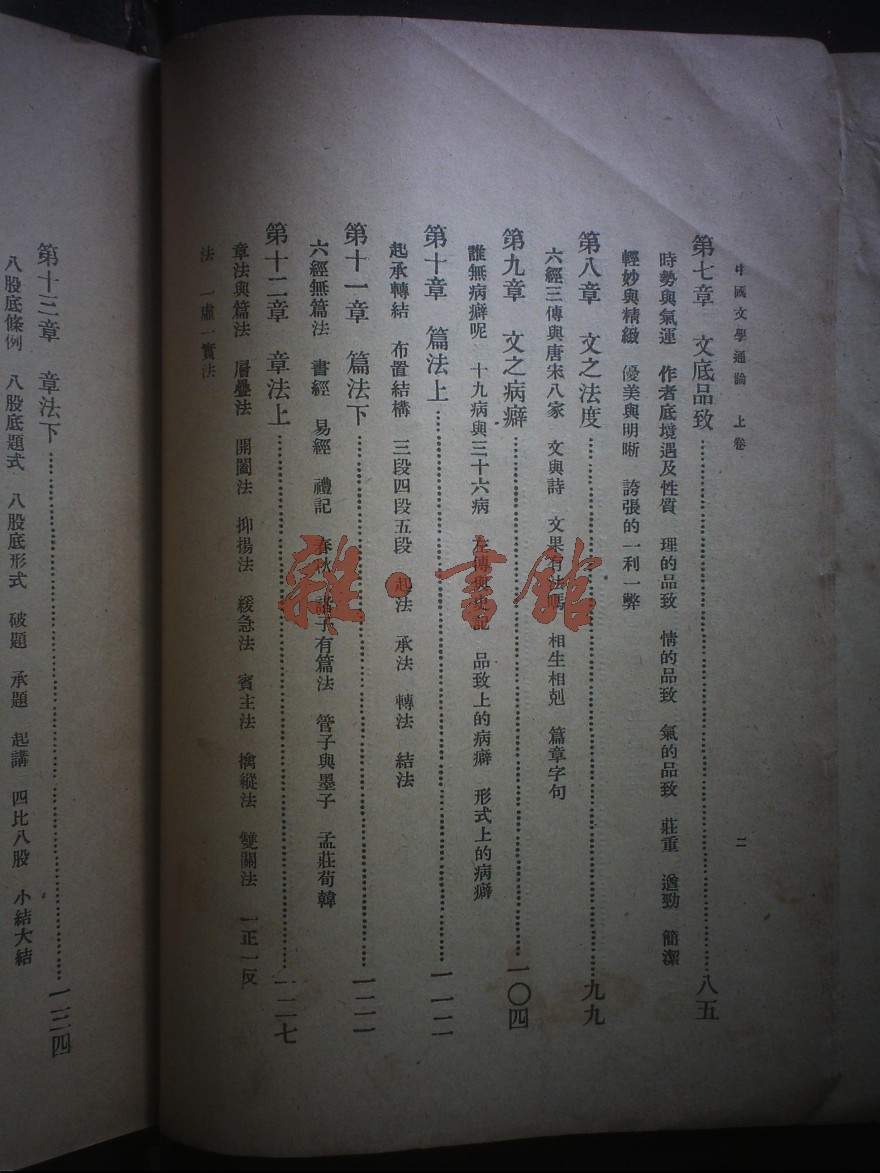 中國文學通論 上卷 二
第七章 文底品致……八五
時勢與氣運 作者底境遇及性質 理的品致 情的品致 氣的品致 莊重 遒勁 簡潔
輕妙與精緻 優美與明晰 誇張的一利一弊
第八章 文之法度……九九
六經三傳與唐宋八家 文與詩 文果有法嗎 相生相剋 篇章字句
第九章 文之病癖……一〇四
誰無病癖呢 十九病與三十六病 左傳與史記 品致上的病癖 形式上的病癖
第十章 篇法上……一一二
起承轉結 布置結構 三段四段五段 起法 承法 轉法 結法
第十一章 篇法下……一二一
六經無篇法 書經 易經 禮記 春秋 諸子有篇法 管子與墨子 孟莊荀韓
第十二章 章法上……一二七
章法與篇法 層疊法 開闔法 抑揚法 緩急法 賓主法 擒縱法 雙關法 一正一反
法 一虛一實法
第十三章 章法下……一三四
八股底條例 八股底題式 八股底形式 破題 承題 起講 四比八股 小結大結
雜·書館